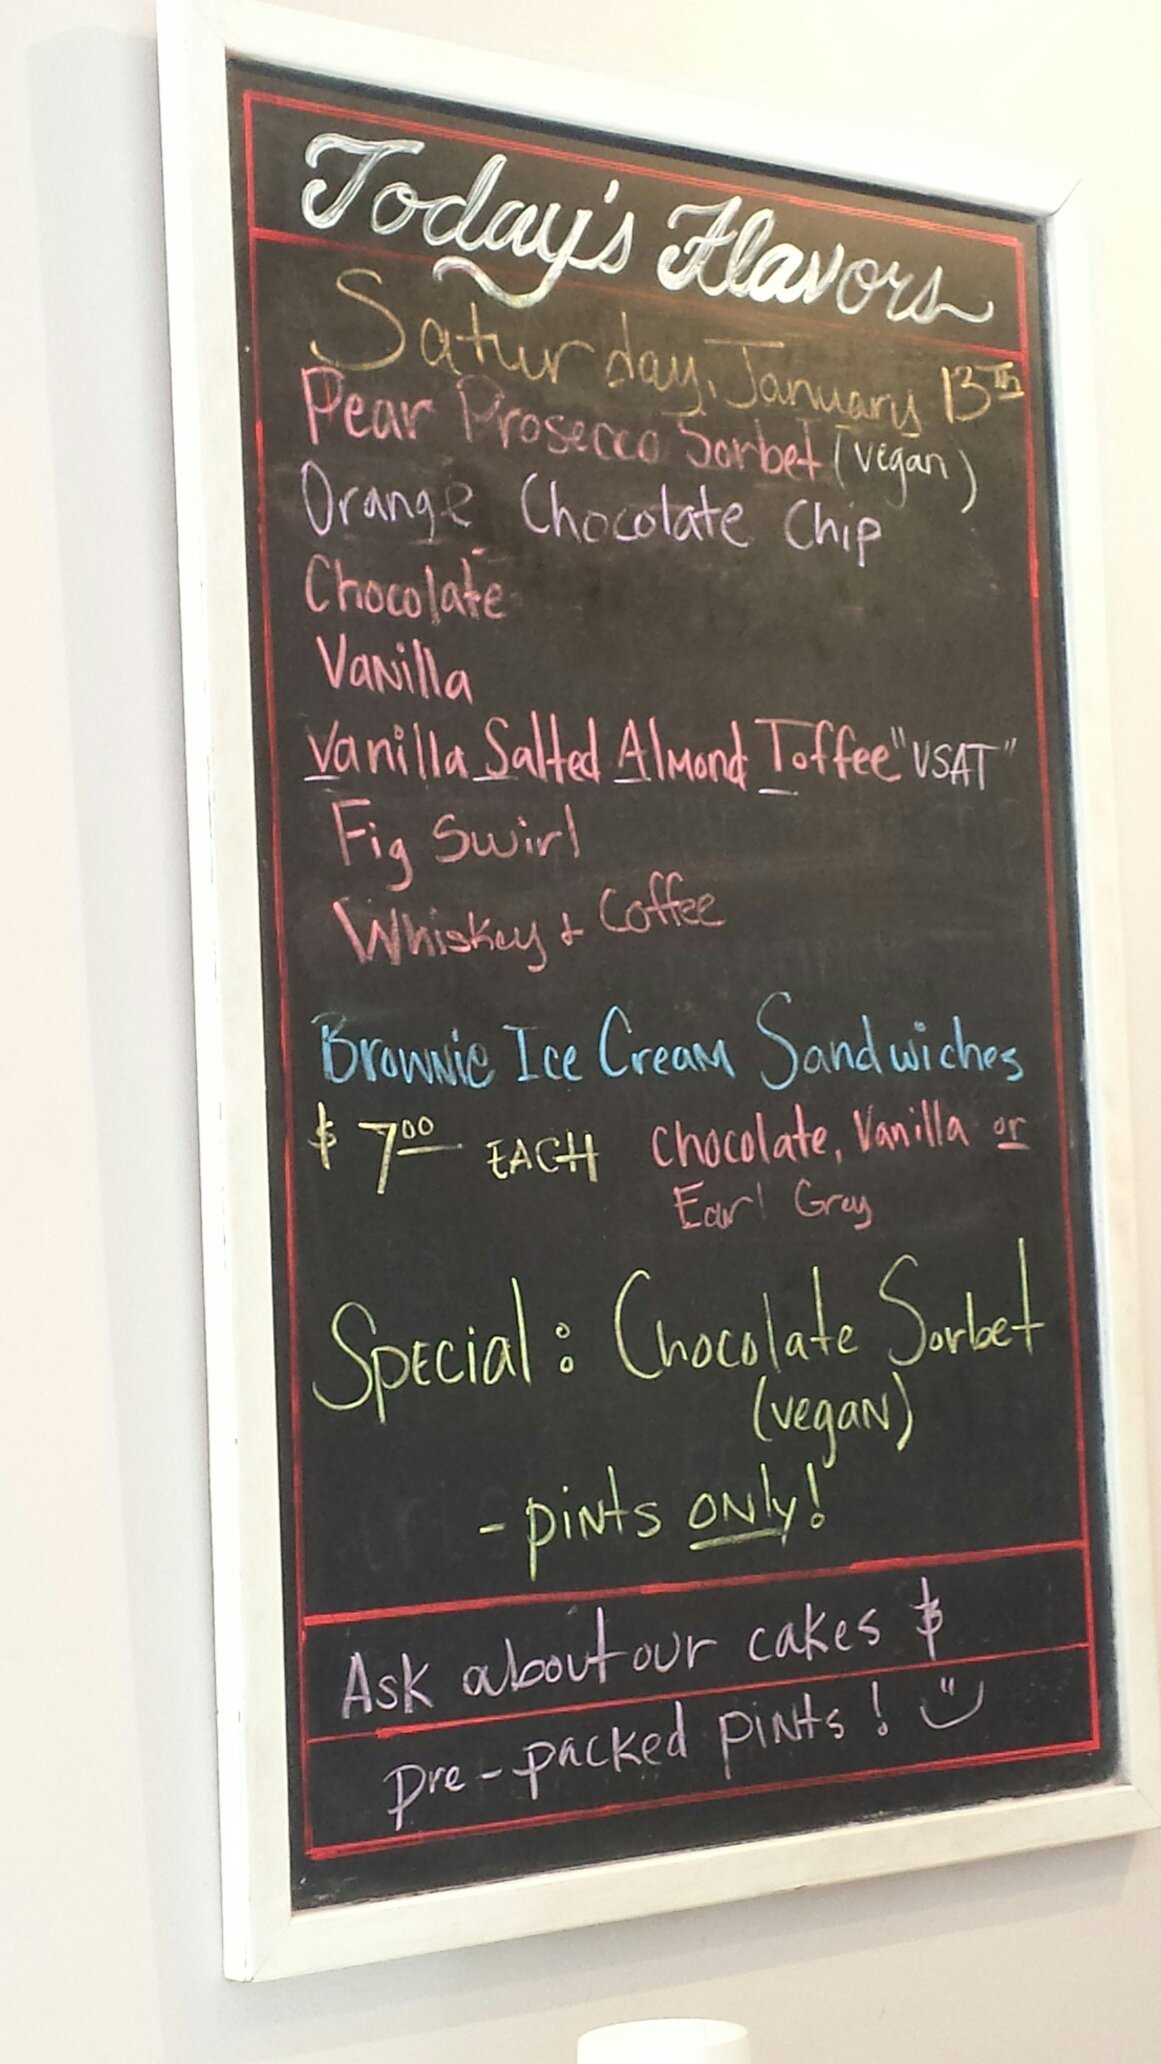 Today's Flavors
Saturday, January 13TH
Pear Prosecco Sorbet (vegan)
Orange Chocolate Chip
Chocolate
Vanilla
Vanilla Salted Almond Toffee "VSAT"
Fig Swirl
Whiskey + Coffee
Brownie Ice Cream Sandwiches
$7.00 EACH Chocolate, Vanilla or
Earl Grey
Special: Chocolate Sorbet
(vegan)
- pints only!
Ask about our cakes &
pre-packed pints!